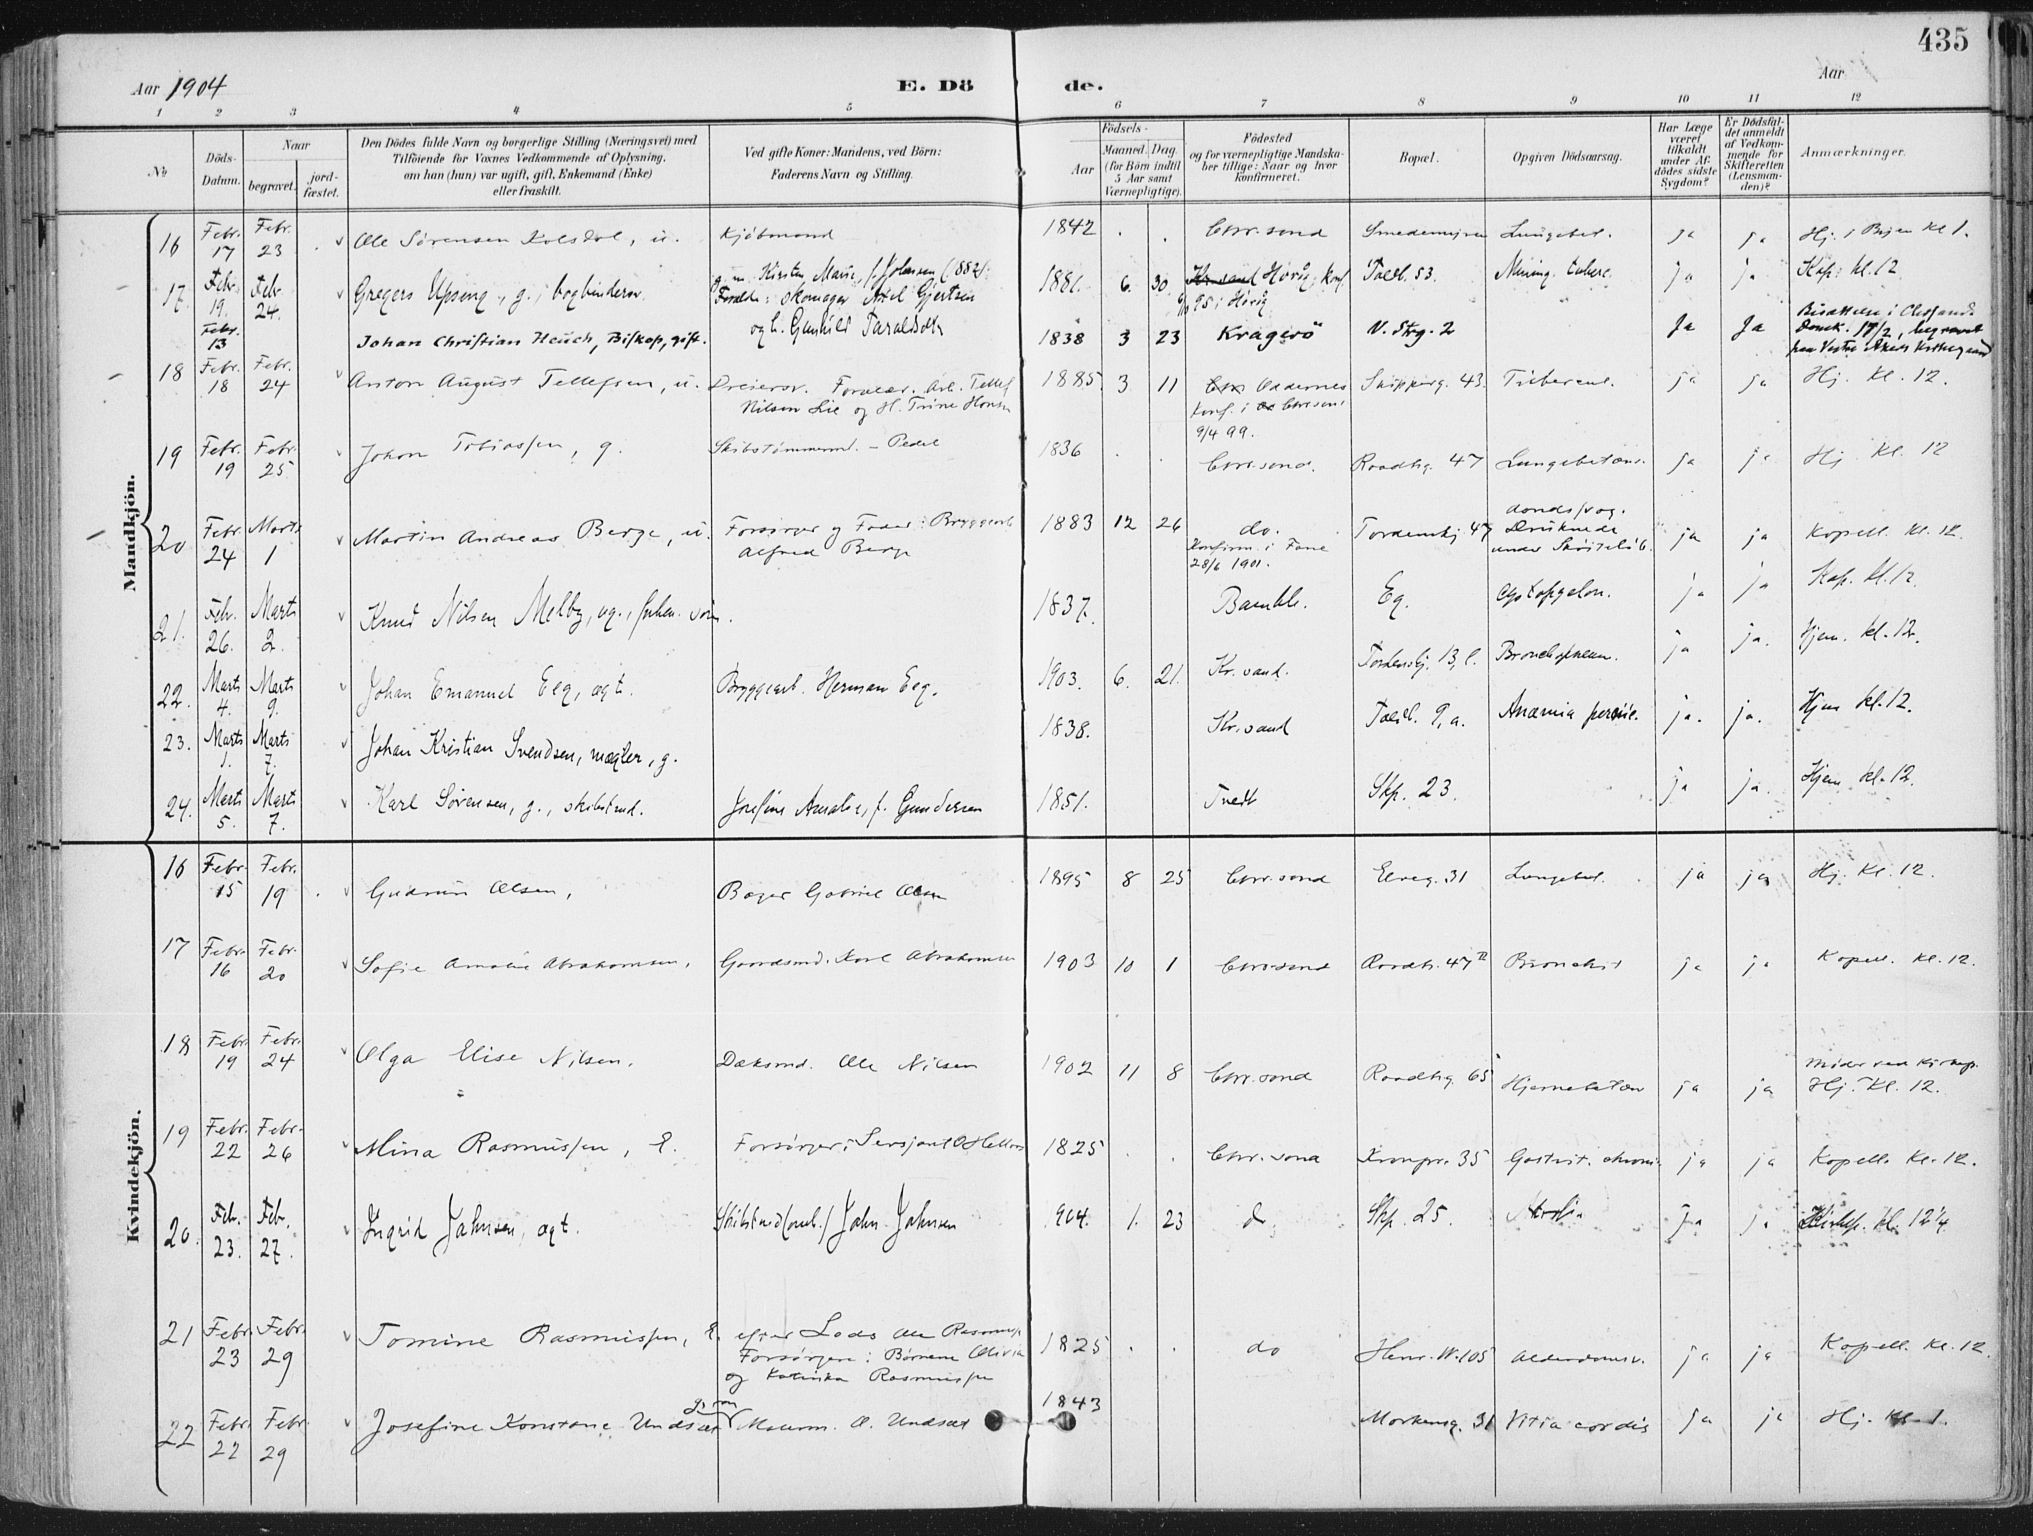 435
Aar 1904
E. Dö
de.
Aar
1 2 3 4 5 6 7 8 9 10 11 12
№
Döds-Datum.
Naar
begravet.
jord-fæstet.
Den Dödes fulde Navn og borgerlige Stilling (Næringsvei) med
Tilföiende for Voxnes Vedkommende af Oplysning,
om han (hun) var ugift, gift, Enkemand (Enke)
eller fraskilt.
Ved gifte Koner: Mandens, ved Börn:
Faderens Navn og Stilling.
Födsels-
Aar
Maaned. Dag.
(for Börn indtil
5 Aar samt
Værnepligtige).
Födested
og for værnepligtige Mandska-
ber tillige: Naar og hvor
konfirmeret.
Bopæl.
Opgiven Dödsaarsag.
Har Læge
været
tilkaldt
under Af-
dödes sidste
Sygdom?
Er Dödsfal-
det anmeldt
af Vedkom-
mende for
Skifteretten
(Lensman-
den)?
Anmærkninger.
Mandkjön.
16 Febr. 17 Febr. 23 Ole Sørensen Kolsdal, u. Kjøbmand 1842 Chr.sand Lungebet. ja ja Hj. i Byen Kl 1.
17. Febr. 19. Febr. 24. Gregers Upseng, g., bogbindersv. g. m. Kirsten Marie, f. Johnsen (1882)
Forældr: Skomager Axel Gjertsen
og h. Gunhild Taraldsdtr 1881. 6. 30 Kr.sand Horög, konf.
95 i Horög Tollb. 53. Mening. tuberc. ja ja Kap: kl. 12
Febr. 13 Johan Christian Heuch, Biskop, gift. 1838 3 23 Kragerö V. Strg. 2 Ja Ja Bisættelse i Chrssand.
Domk. 17/2, begravet
paa Vestre Akers Kirkegaard
18 Febr. 18 Febr. 24 Anton August Tellefsen, u. Dreiersv. Foræld. Arb. Tellef
Nilsen Lie og H. Trine Hansen 1885 3 11 Oddernes
konf. i Chrsand
9/4 99. Skipperg. 43. Tuberkul. ja ja Hj. Kl. 12.
19 Febr. 19 Febr. 25 Johan Tobiassen, g. Skibstømmermd. - Pedel 1836 Chr.sand. Raadhg. 47 Lungebetænd. ja ja Hj Kl. 12
20 Febr. 24 Marts 1 Martin Andreas Berge, u. Forsørger og Fader: Bryggearb.
Alfred Berge 1883 12 26 do.
Konfirm. i Fane
28/6 1901. Tordenskj 47 Druknede
under Skøiteløb. ja ja Kapell. Kl. 12.
21. Feb. 26. Marts 2. Knud Nilsen Melby, ug., 1837. Bamble. Eg. ja ja Kap. kl. 12.
22. Marts 4. Marts 9. Johan Emanuel Eeg, ugt. Bryggearb. Herman Eeg. 1903. 6. 21. Kr.sand. Tordenskj. 13, l. Bronchopneum. ja ja. Hjem. kl. 12.
23. Marts 1. Marts 7. Johan Kristian Svendsen, mægler, g. 1838. Kr.sand Toldb. 9, a. Anæmia pernic. ja. ja. Hjem kl. 12.
24. Marts 5. Marts 7. Karl Sørensen, g., skibstmd. Josefine Amalie, f. Gundersen 1851. Tvedt Skp. 23. ja ja. Hjem. kl. 12.
Kvindekjön.
16 Febr. 15 Febr. 19 Gudrun Olsen, Bager Gabriel Olsen 1895 8 25 Chr.sand Elveg. 31 Lungebet. ja ja Hj. Kl. 12.
17 Febr. 16 Febr. 20 Sofie Amalie Abrahamsen, Gaardsmd. Karl Abrahamsen 1903 10 1 Chr.sand Raadh. 47 II Bronchit ja ja Kapell. Kl. 12.
18 Febr. 19 Febr. 24 Olga Elise Nilsen. Daksmd. Ole Nilsen 1902 11 8 Chr.sand Raadhg. 65 Hjernebetæn ja ja Møder ved Kirkegr.
Hj. Kl. 12.
19 Febr. 22 Febr. 26 Mina Rasmussen, E. Forsørger: Sersjant O Hellors 1825 Chr.sand Kronpr. 35 Gastrit. chroni. ja ja Kapell. Kl. 12.
20. Feb. 23. Feb. 27. Ingrid Jahnsen, ugt. Skibstmd (omk.) John Jahnsen 904. 1. 23 do Skp. 25. ja ja Kirkep. kl. 12 1/4
21 Febr. 23 Febr. 29 Tomine Rasmussen, E. efter Lods Ole Rasmuss.
Forsørgere: Børnene Olivia
og Katinka Rasmussen 1825 do Henr. W. 105 Alderdomsv. ja ja Kapell. Kl. 12.
22 Febr. 22 Febr. 29 Josefine Konstance Undsæt g. m. Malerm. O. Undsæt 1843 Markensg. 31 Vitia cordis ja ja Hj. Kl. 1.